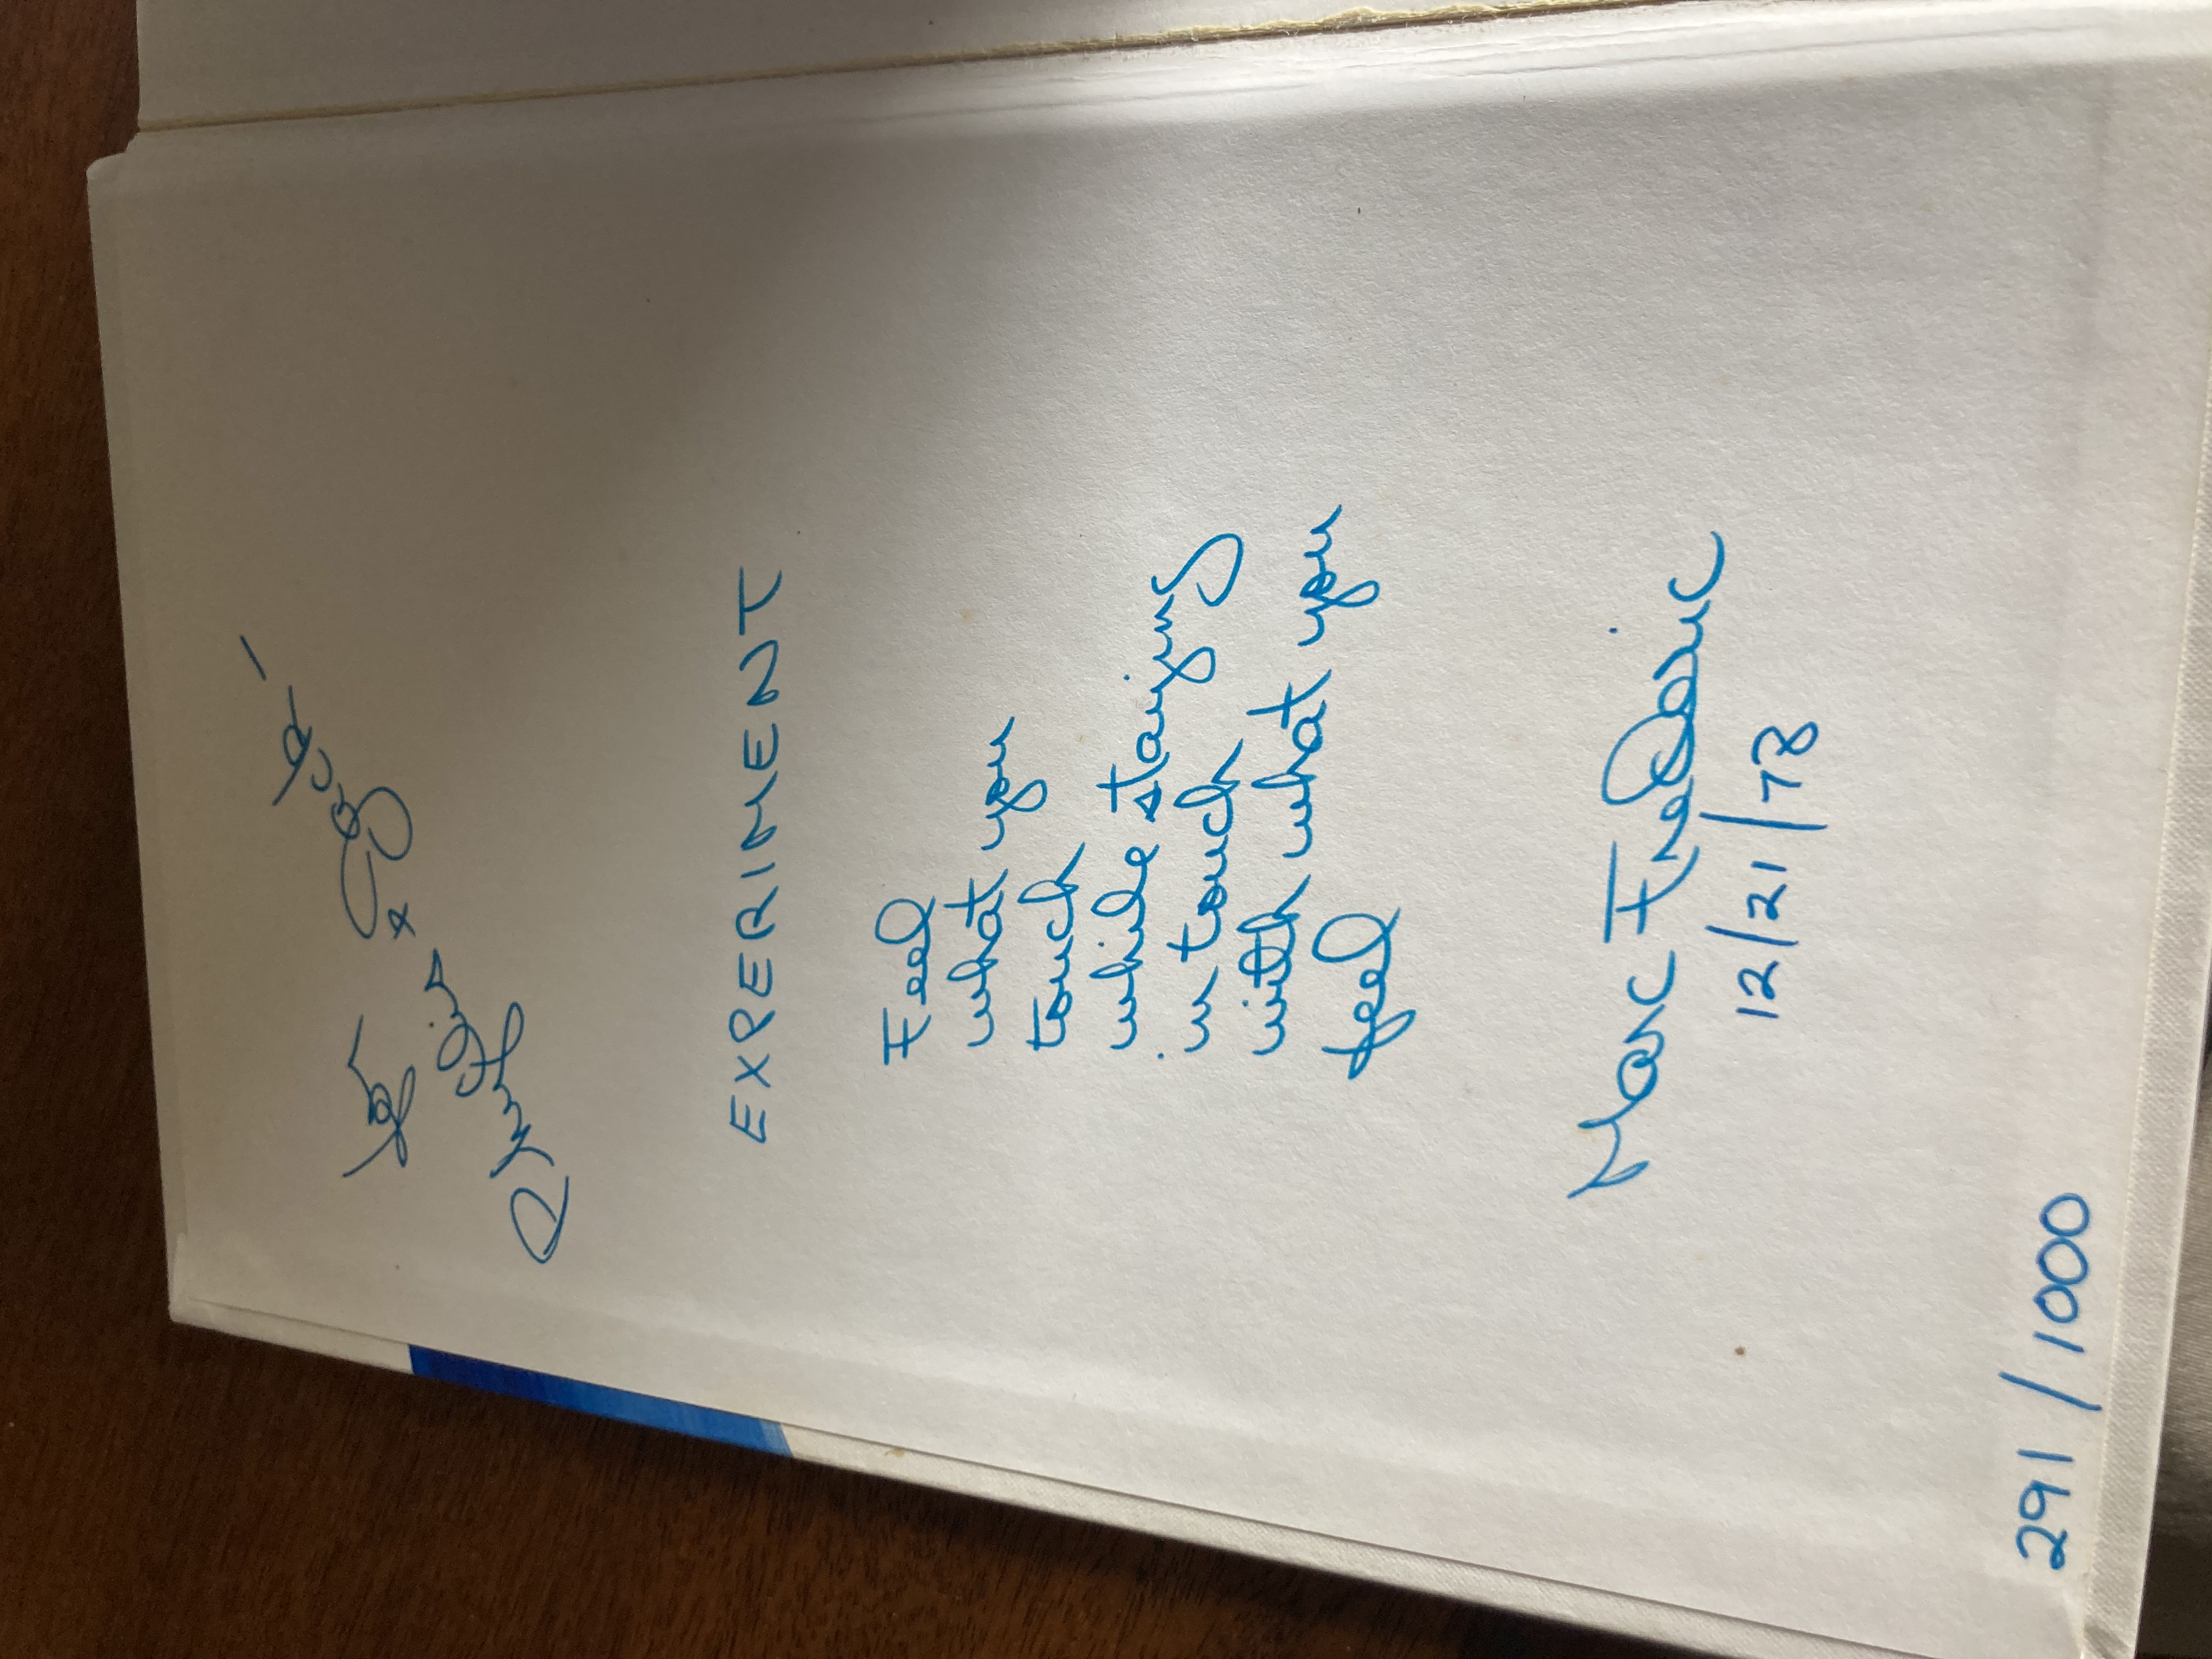 for
EXPERIMENT
Feel
what you
touch
while staying
in touch
with what you
feel
Marc Fredric
12/21/78
291/1000